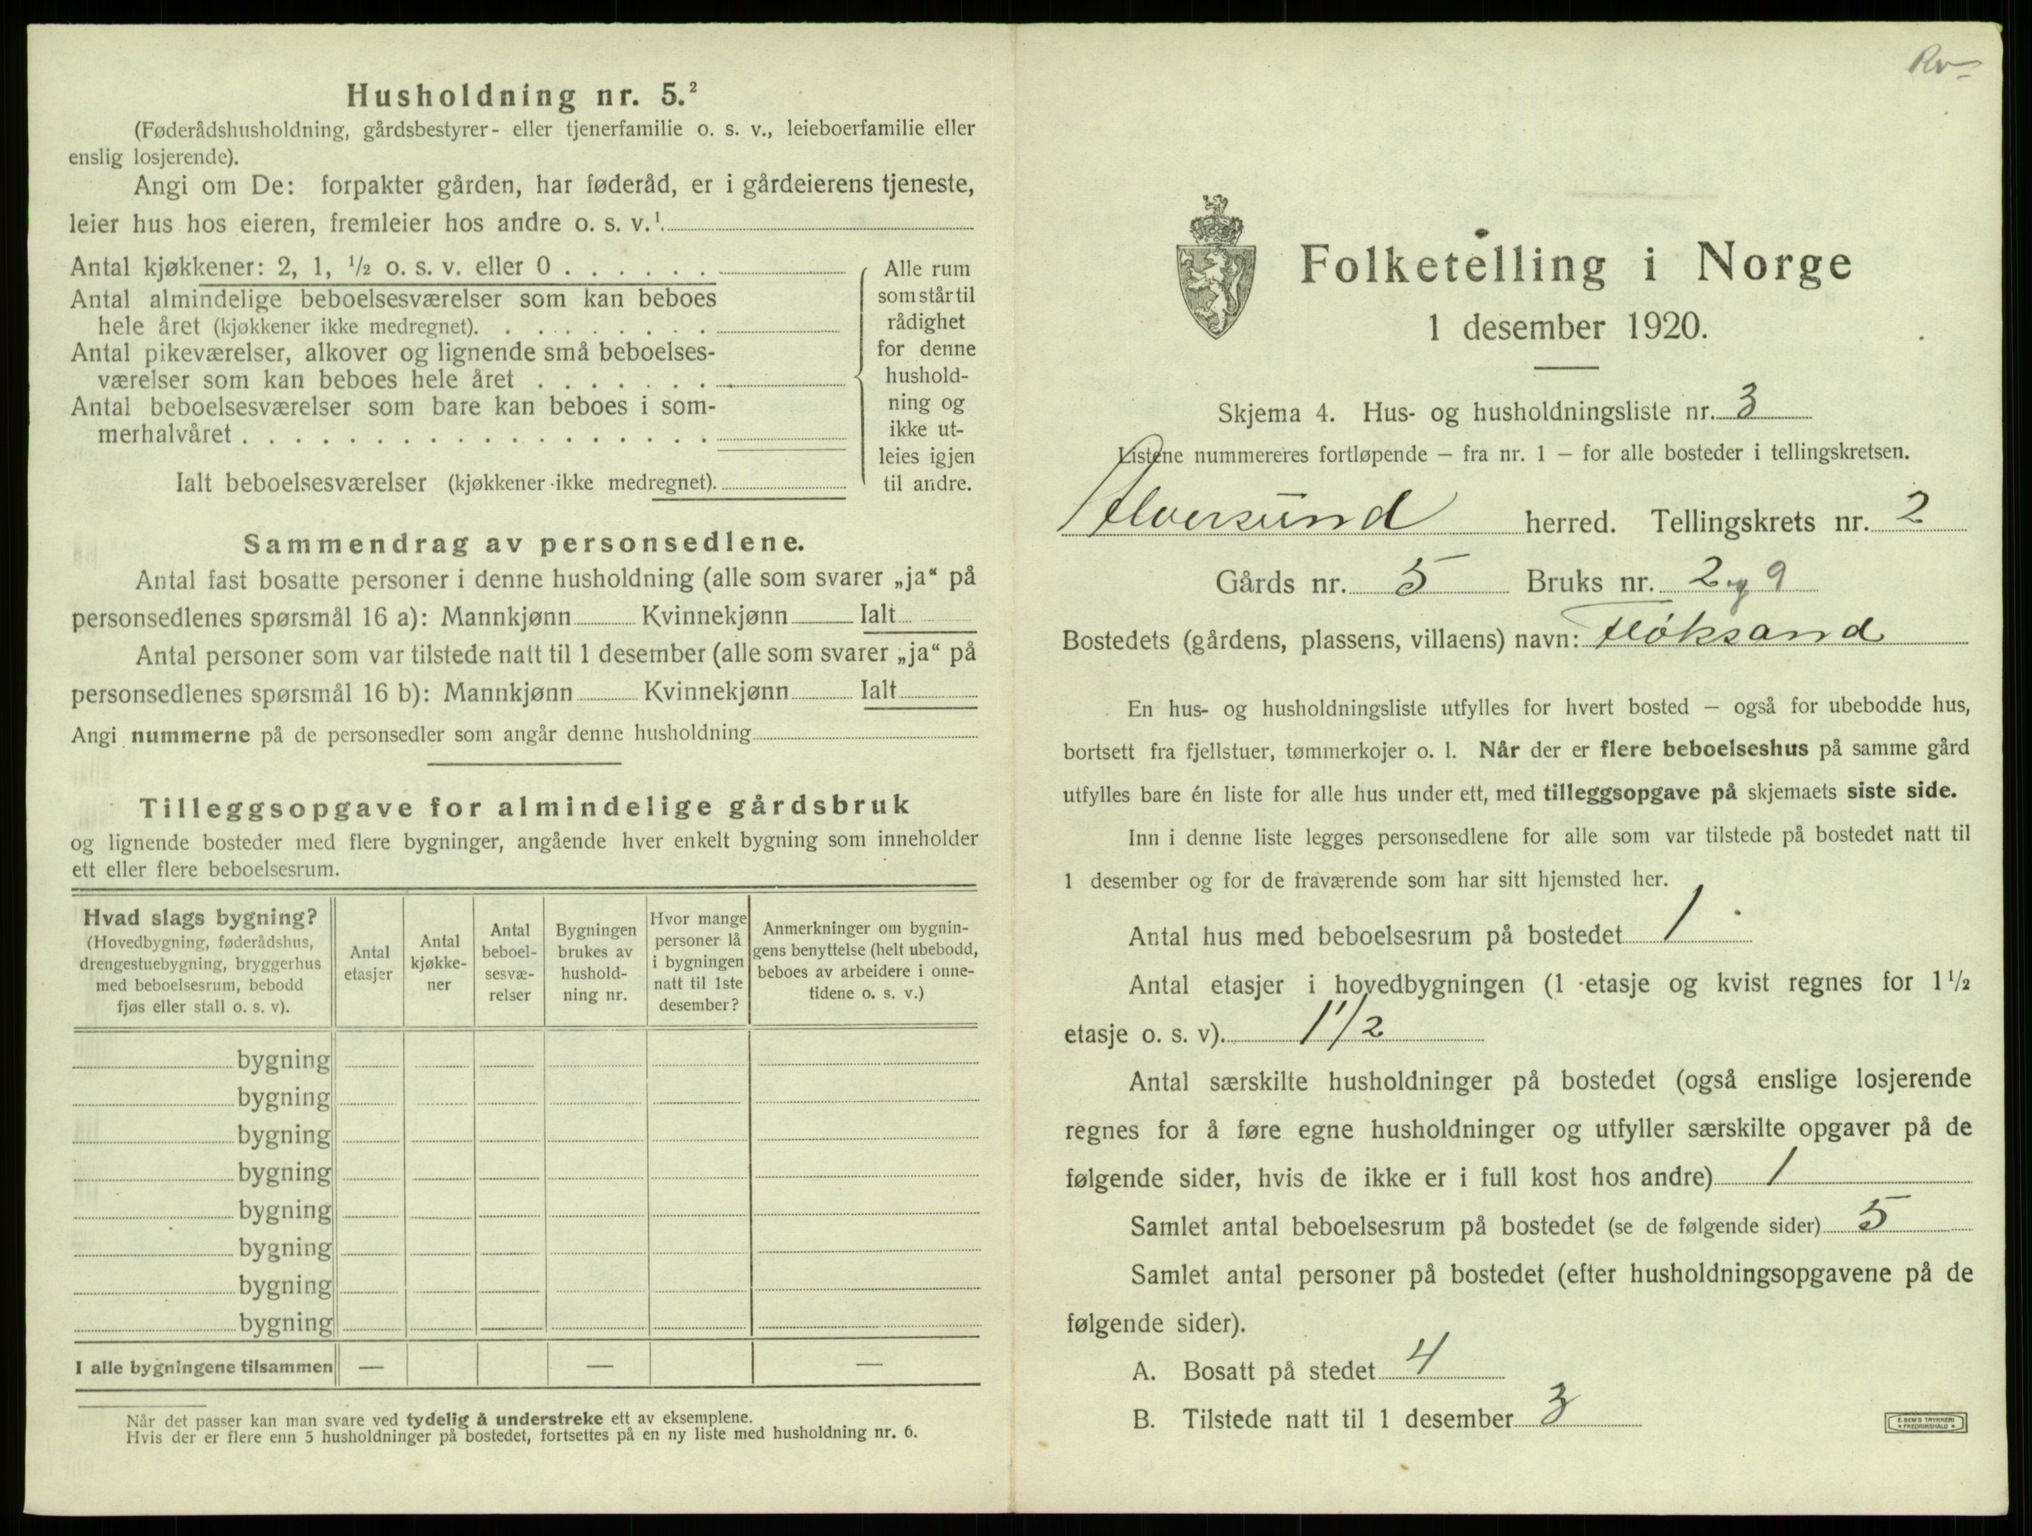 Husholdning nr. 5.²
(Føderådshusholdning, gårdsbestyrer- eller tjenerfamilie o. s. v., leieboerfamilie eller
enslig losjerende).
Angi om De: forpakter gården, har føderåd, er i gårdeierens tjeneste,
leier hus hos eieren, fremleier hos andre o. s. v.¹
Antal kjøkkener: 2, 1, ½ o. s. v. eller 0 . . . . . .
Antal almindelige beboelsesværelser som kan beboes
hele året (kjøkkener ikke medregnet). . . . . . . . .
Antal pikeværelser, alkover og lignende små beboelses-
værelser som kan beboes hele året . . . . . . .
Antal beboelsesværelser som bare kan beboes i som-
merhalvåret . . . . . . . . . . . . . . . . . .
Ialt beboelsesværelser (kjøkkener ikke medregnet).
Alle rum
som står til
rådighet
for denne
hushold-
ning og
ikke ut-
leies igjen
til andre.
Sammendrag av personsedlene.
Antal fast bosatte personer i denne husholdning (alle som svarer „ja“ på
personsedlenes spørsmål 16 a): Mannkjønn Kvinnekjønn Ialt
Antal personer som var tilstede natt til 1 desember (alle som svarer „ja“ på
personsedlenes spørsmål 16 b): Mannkjønn Kvinnekjønn Ialt
Angi nummerne på de personsedler som angår denne husholdning
Tilleggsopgave for almindelige gårdsbruk
og lignende bosteder med flere bygninger, angående hver enkelt bygning som inneholder
ett eller flere beboelsesrum.
Hvad slags bygning?
(Hovedbygning, føderådshus,
drengestuebygning, bryggerhus
med beboelsesrum, bebodd
fjøs eller stall o. s. v).
Antal
etasjer
Antal
kjøkke-
ner
Antal
beboel-
sesvæ-
relser
Bygningen
brukes av
hushold-
ning nr.
Hvor mange
personer lå
i bygningen
natt til 1ste
desember?
Anmerkninger om bygnin-
gens benyttelse (helt ubebodd,
beboes av arbeidere i onne-
tidene o. s. v.)
bygning
bygning
bygning
bygning
bygning
bygning
bygning
bygning
I alle bygningene tilsammen — — —
Når det passer kan man svare ved tydelig å understreke ett av eksemplene.
Hvis der er flere enn 5 husholdninger på bostedet, fortsettes på en ny liste med husholdning nr. 6.
Folketelling i Norge
1 desember 1920.
Skjema 4. Hus- og husholdningsliste nr. 3
Listene nummereres fortløpende – fra nr. 1 – for alle bosteder i tellingskretsen.
Alversund herred. Tellingskrets nr. 2
Gårds nr. 5 Bruks nr. 2 og 9
Bostedets (gårdens, plassens, villaens) navn: Fløksand
En hus- og husholdningsliste utfylles for hvert bosted – også for ubebodde hus,
bortsett fra fjellstuer, tømmerkojer o. l. Når der er flere beboelseshus på samme gård
utfylles bare én liste for alle hus under ett, med tilleggsopgave på skjemaets siste side.
Inn i denne liste legges personsedlene for alle som var tilstede på bostedet natt til
1 desember og for de fraværende som har sitt hjemsted her.
Antal hus med beboelsesrum på bostedet 1
Antal etasjer i hovedbygningen (1 etasje og kvist regnes for 1½
etasje o. s. v). 1 1/2
Antal særskilte husholdninger på bostedet (også enslige losjerende
regnes for å føre egne husholdninger og utfyller særskilte opgaver på de
følgende sider, hvis de ikke er i full kost hos andre) 1
Samlet antal beboelsesrum på bostedet (se de følgende sider) 5
Samlet antal personer på bostedet (efter husholdningsopgavene på de
følgende sider).
A. Bosatt på stedet 4
B. Tilstede natt til 1 desember 3
E. SEM'S TRYKKERI
FREDRIKSHALD